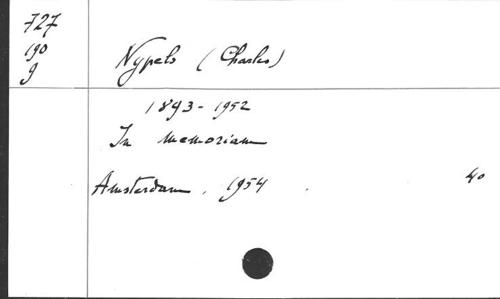 727
190
9
Nypels (Charles)
1893-1952
In memoriam
Amsterdam, 1954. 4o